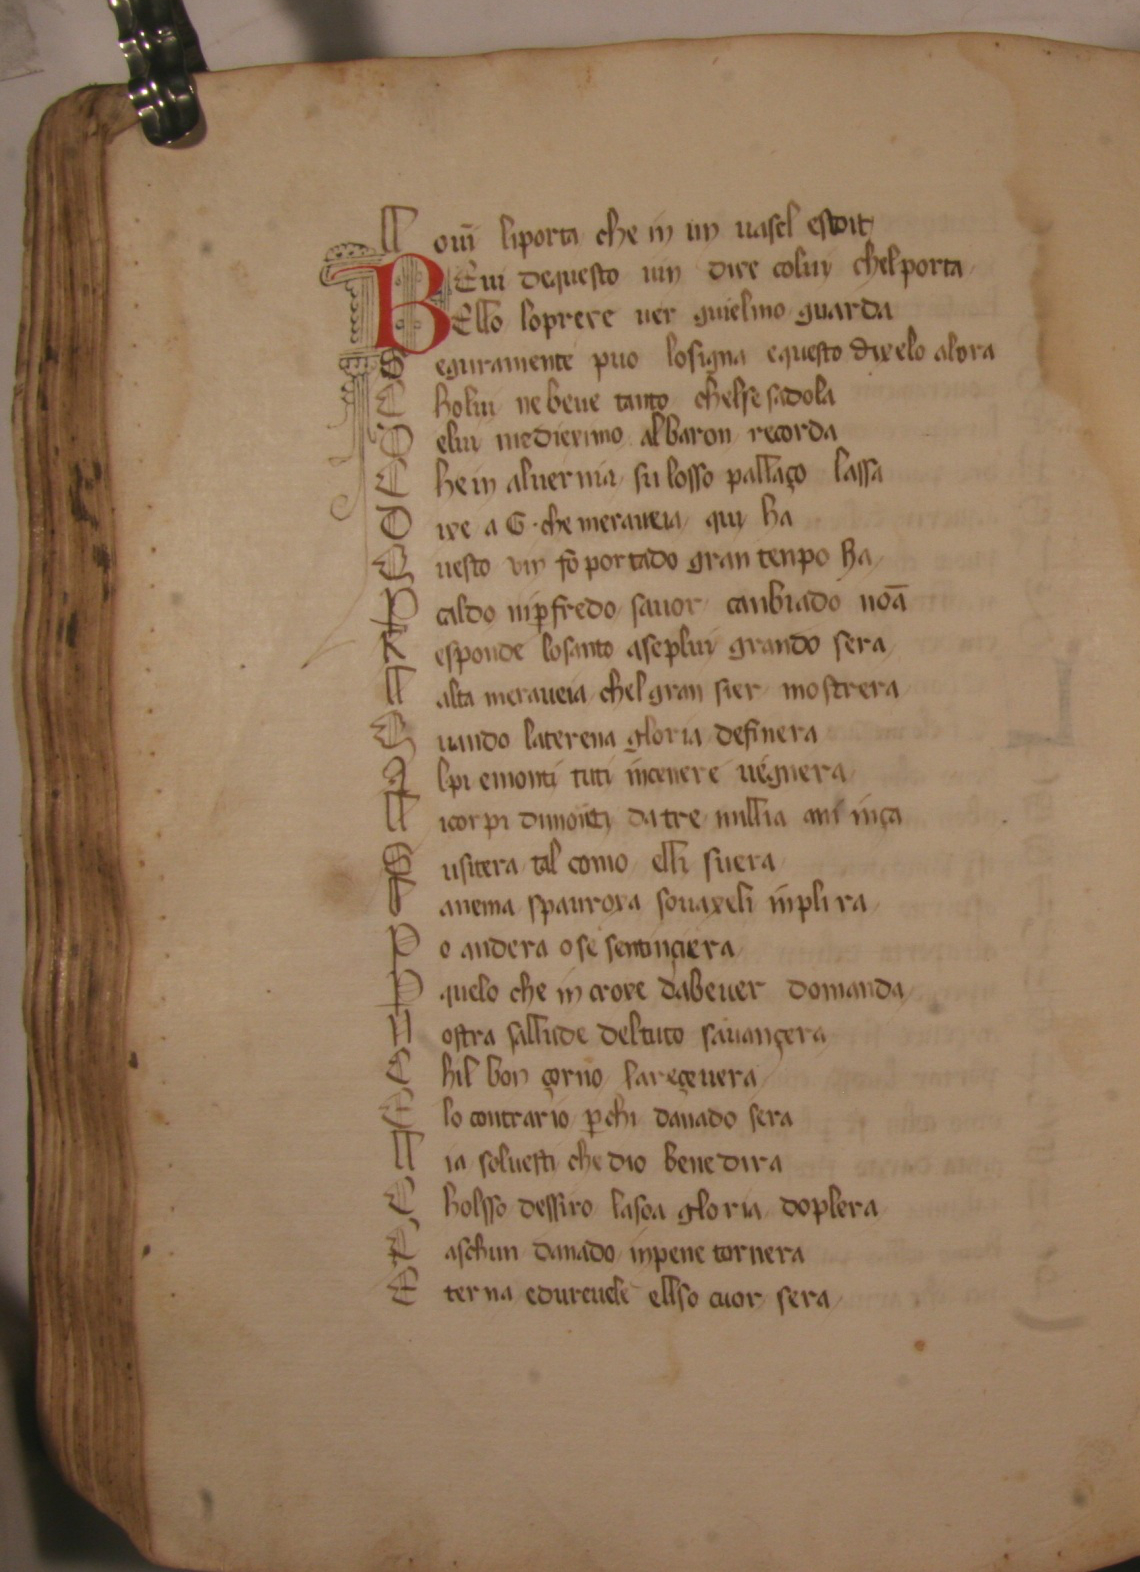 L oui͂ liporta che in un uasel estoit
BEui dequesto uin dixe colui chelporta
Ello loprexe uer guielmo guarda
S eguramente puo losigna equesto dixelo alora
C holui nebeue tanto chelse sadola
D elui medieximo albaron recorda
C he in aluernia su losso pallaço lassa
D ixe a G · che meraueia qui ha
Q uesto vin fo portado gran tenpo ha
P caldo nip̱ fredo sauor canbiado noā
R esponde losanto aseplui grando sera
L alta meraueia chel gran sier mostrera
Q uando laterena gloria definera
A lpi emonti tuti incenere uegnera
L icorpi dimoieti da tre millia ani inça
S usitera tal como elli fuera
L anema spauroxa souaxeli inplira
P o andera ose sentinçiera
P quelo che in croxe dabeuer domanda
N ostra sallude deltuto sauançera
C hil bon çorno lareçeuera
E lo contrario p̱chi danado sera
L ia soluesti che dio benedira
C holsso dessiro lasoa gloria doplera
C aschun danado inpene tornera
E terna edureuele ellso cuor sera